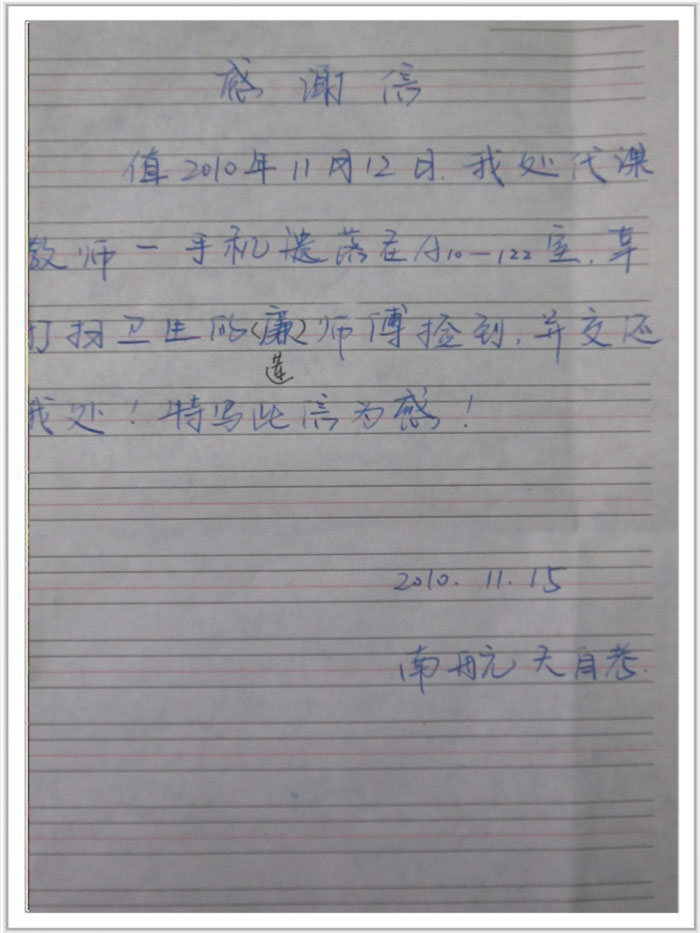 感谢信
值2010年11月12日.我处代课
教师一手机遗落在A10—122室,
打扫卫生的(廉)师傅捡到,并交还
莲
我处!特写此信为感!
2010.11.15
南航天自考.